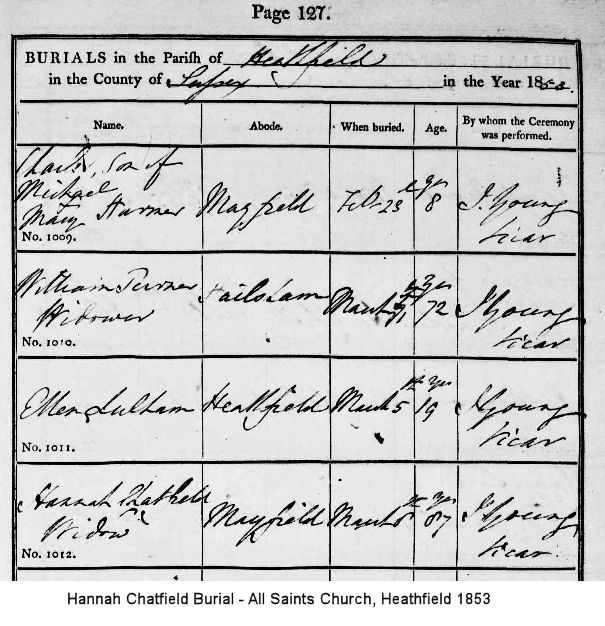 Page 127.
BURIALS in the Parish of Heathfield
in the County of Sussex in the Year 1853
Name. Abode. When buried. Age. By whom the Ceremony was performed.
Charles, Son of
Michael
Mary Harmer Mayfield Feb 23 8 yrs J. Young
Vicar
No. 1009.
William Turner Hailsham March 72 yrs J Young
Widower Vicar
No. 1010.
Ellen Lulham Heathfield March 5 19 yrs J Young
Vicar
No. 1011.
Hannah Chatfield Mayfield March 87 yrs J Young
Widow Vicar
No. 1012.
Hannah Chatfield Burial - All Saints Church, Heathfield 1853